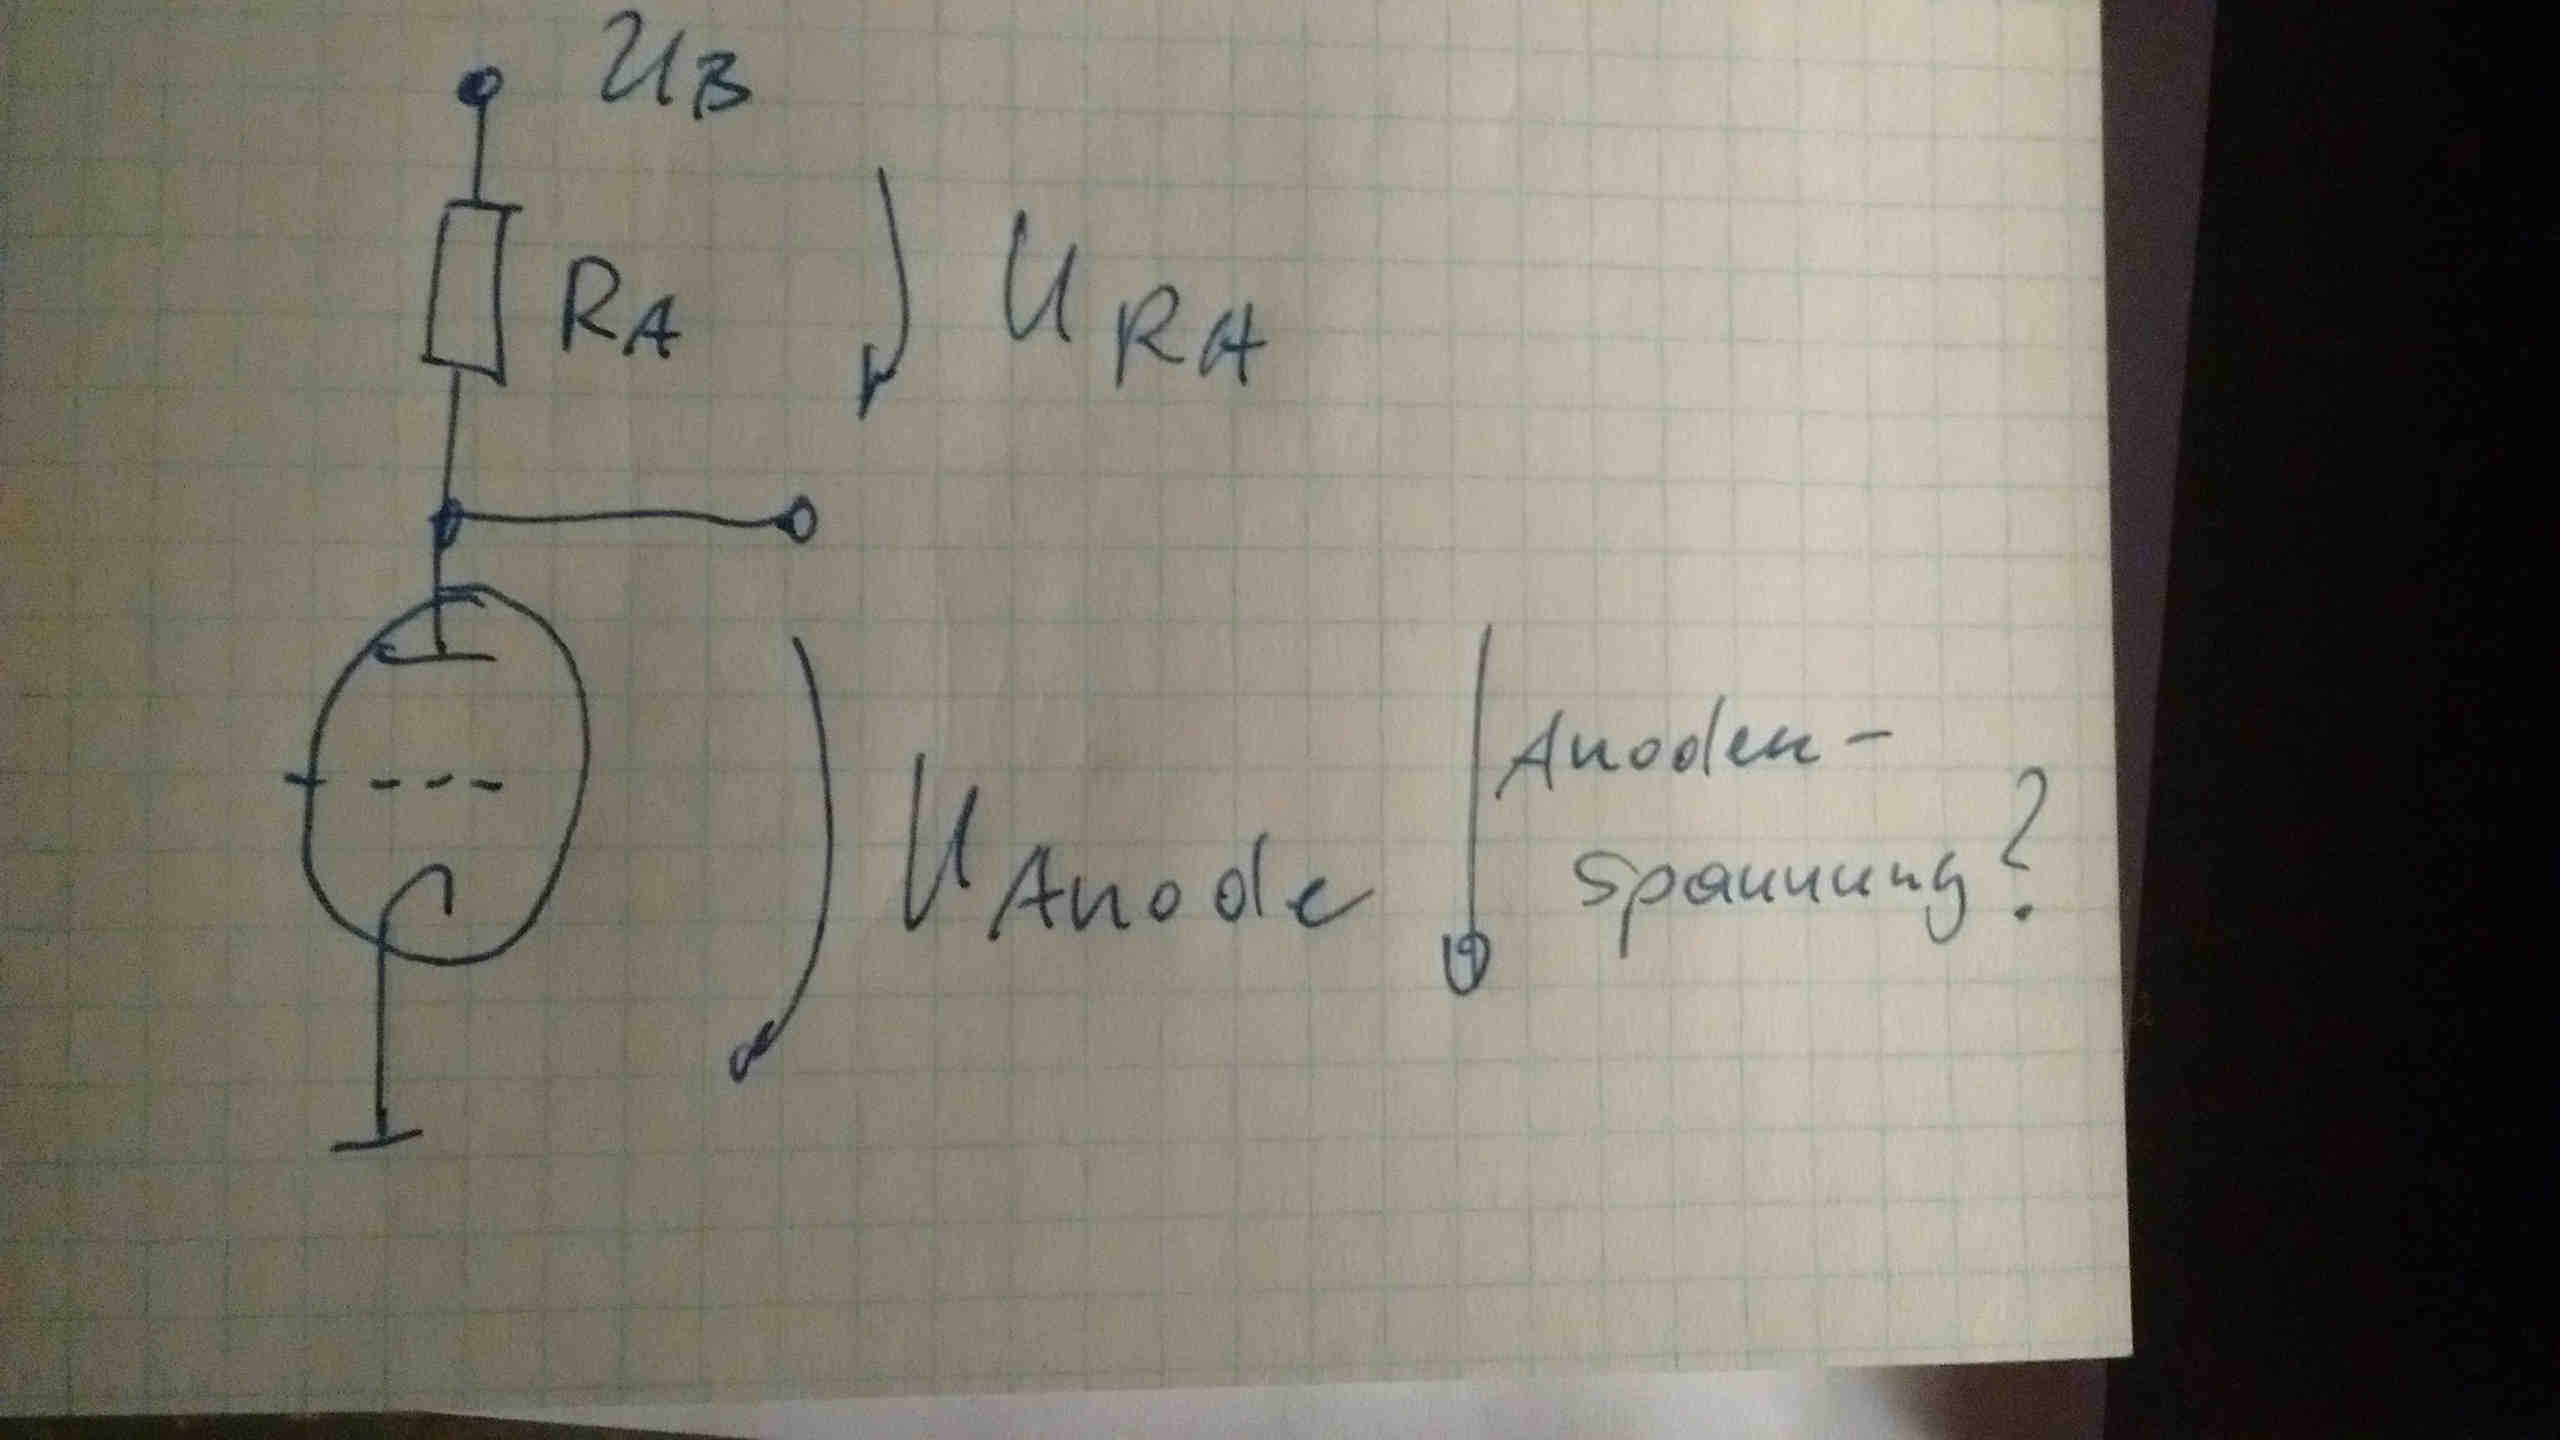 UB
RA
URA
UAnode
Anoden-
spannung?